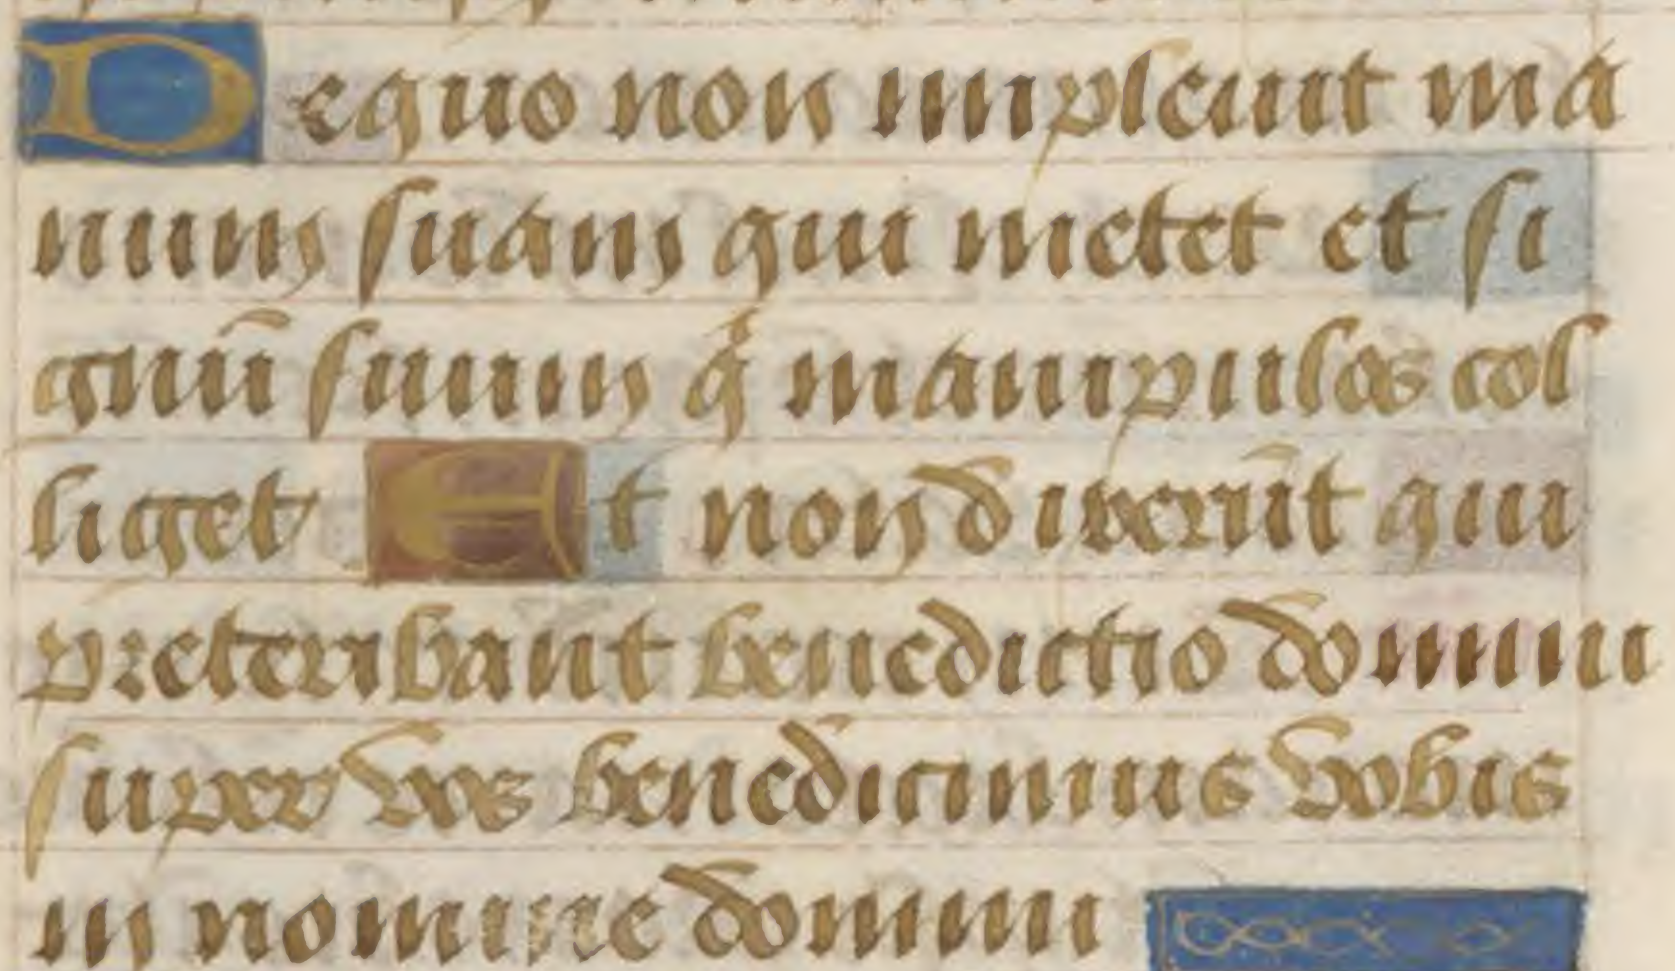 De quo non impleuit ma
num suam qui metet et si
gnū suum q̇ manipulos col
liget Et non dixerūt qui
preteribant benedictio domini
super vos benedicimus vobis
in nomine domini